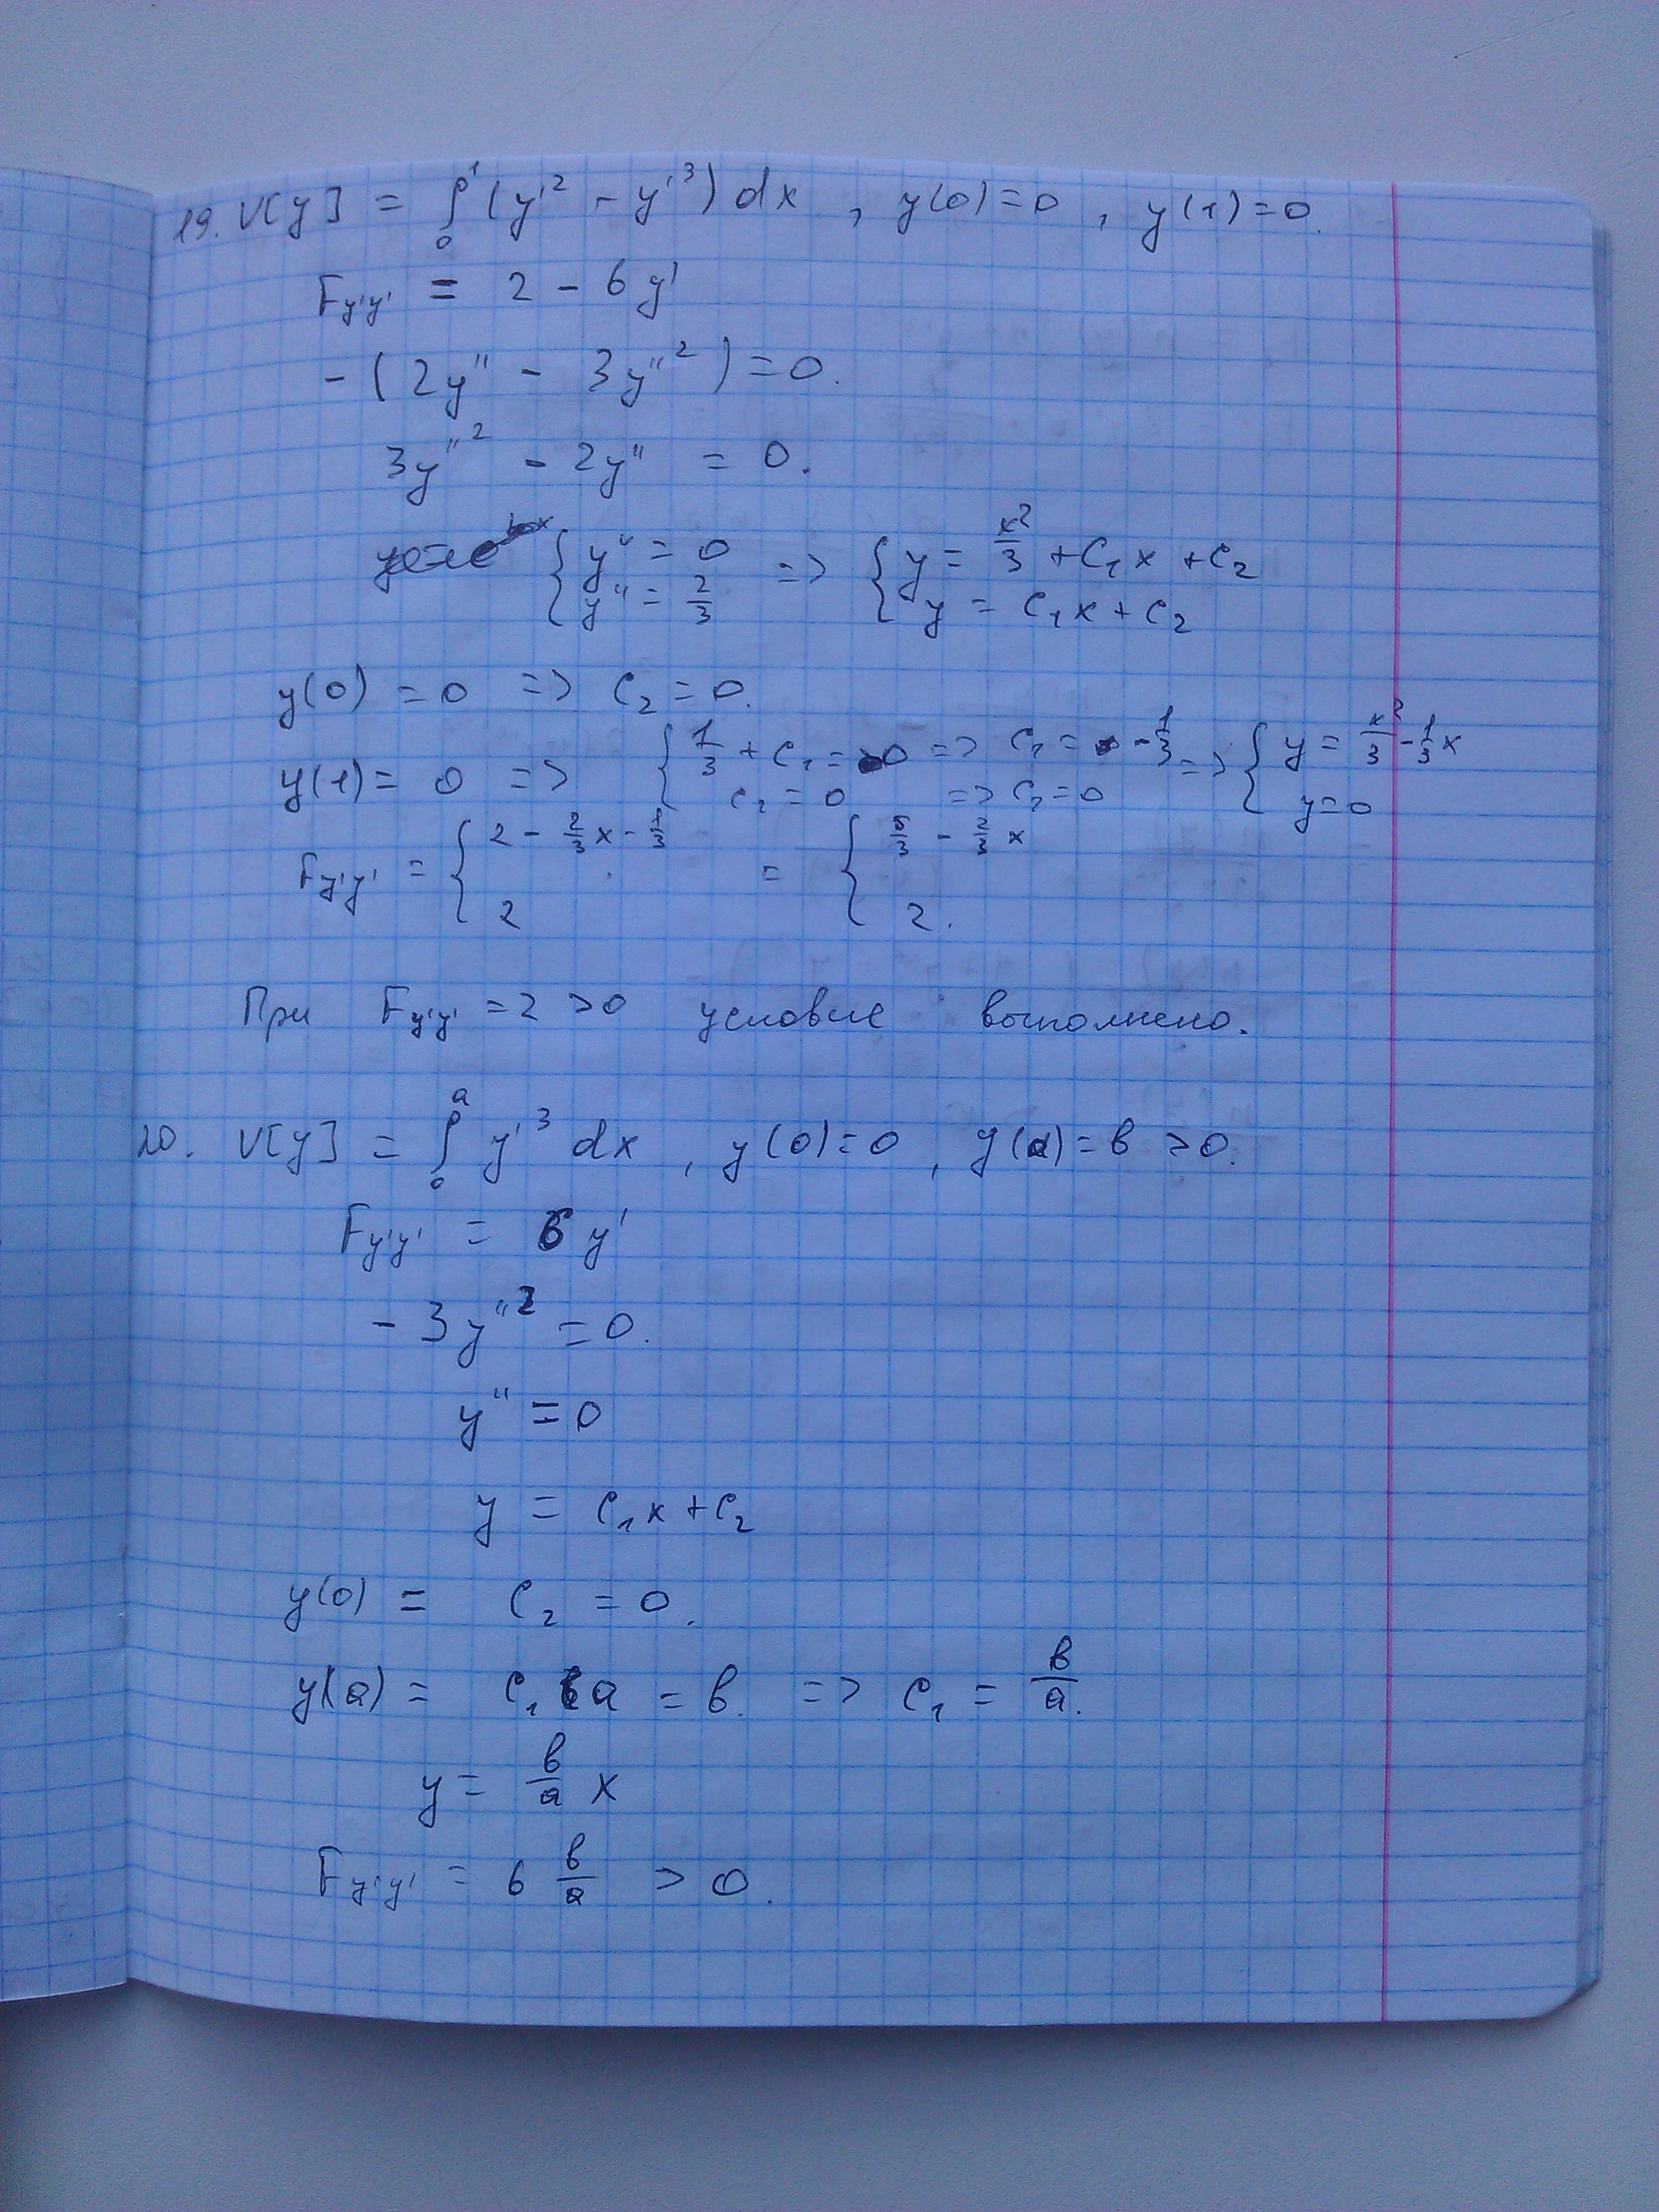 19. V[y] = ∫₀¹ (y'² - y'³) dx , y(0)=0 , y(1)=0.
F_y'y' = 2 - 6y'
-(2y'' - 3y''²) = 0.
3y''² - 2y'' = 0.
{ y'' = 0 ; y'' = 2/3 => { y = x²/3 + C₁x + C₂ ; y = C₁x + C₂
y(0) = 0 => C₂ = 0.
y(1) = 0 => { 1/3 + C₁ = 0 => C₁ = -1/3 ; C₁ = 0 => C₁ = 0 => { y = x²/3 - 1/3 x ; y = 0
F_y'y' = { 2 - 2/3 x - 1/3 ; 2 = { 5/3 - 2/3 x ; 2.
При F_y'y' = 2 > 0 условие выполнено.
20. V[y] = ∫₀ᵃ y'³ dx , y(0)=0 , y(a)=в >0.
F_y'y' = 6y'
-3y''² = 0.
y'' = 0
y = C₁x + C₂
y(0) = C₂ = 0.
y(a) = C₁a = в. => C₁ = в/a.
y = в/a x
F_y'y' = 6 в/a > 0.